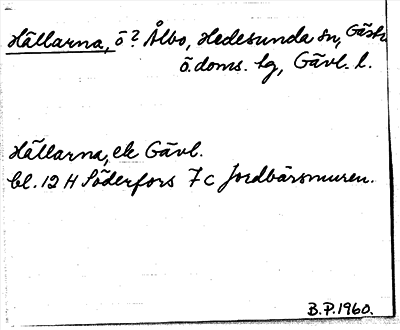 Hällarna, ö? Ålbo, Hedesunda sn, Gästr
ö. doms. hg, Gävl. l.
Hällarna, ek Gävl.
bl. 12 H Söderfors 7 c Jordbärsmuren.
B.P. 1960.